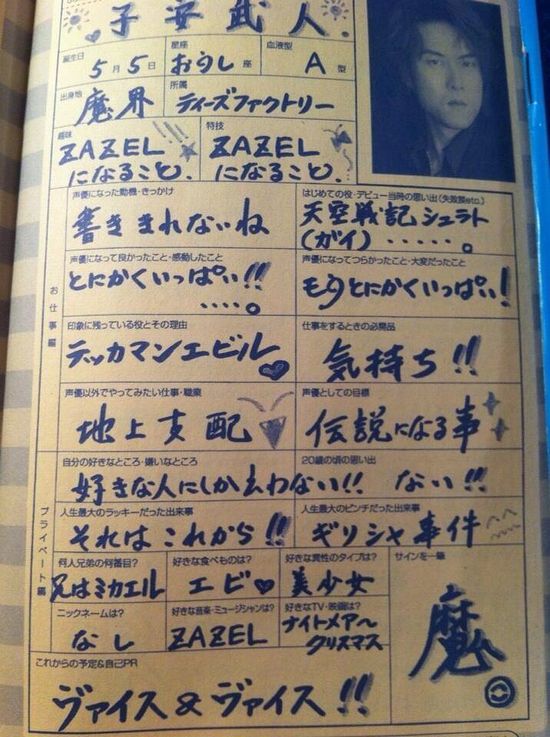 子安武人
誕生日 5月5日
星座 おうし座
血液型 A型
出身地 魔界
所属 ティーズファクトリー
趣味 ZAZELになること、
特技 ZAZELになること、
声優になった動機・きっかけ
書ききれないね
はじめての役・デビュー当時の思い出(失敗談etc.)
天空戦記シュラト
(ガイ)・・・・・。
声優になって良かったこと・感動したこと
とにかくいっぱい!!
・・・・。
声優になってつらかったこと・大変だったこと
もうとにかくいっぱい!
お仕事編
印象に残っている役とその理由
テッカマンエビル♥
仕事をするときの必需品
気持ち!!
声優以外でやってみたい仕事・職業
地上支配
声優としての目標
伝説になる事
自分の好きなところ・嫌いなところ
好きな人にしか言わない!!
20歳の頃の思い出
ない!!
プライベート編
人生最大のラッキーだった出来事
それはこれから!!
人生最大のピンチだった出来事
ギリシャ事件
何人兄弟の何番目?
兄はミカエル
好きな食べものは?
エビ♥
好きな異性のタイプは?
美少女
サインを一筆
魔
ニックネームは?
なし
好きな音楽・ミュージシャンは?
ZAZEL
好きなTV・映画は?
ナイトメアー
クリスマス
これからの予定&自己PR
ヴァイス&ヴァイス!!